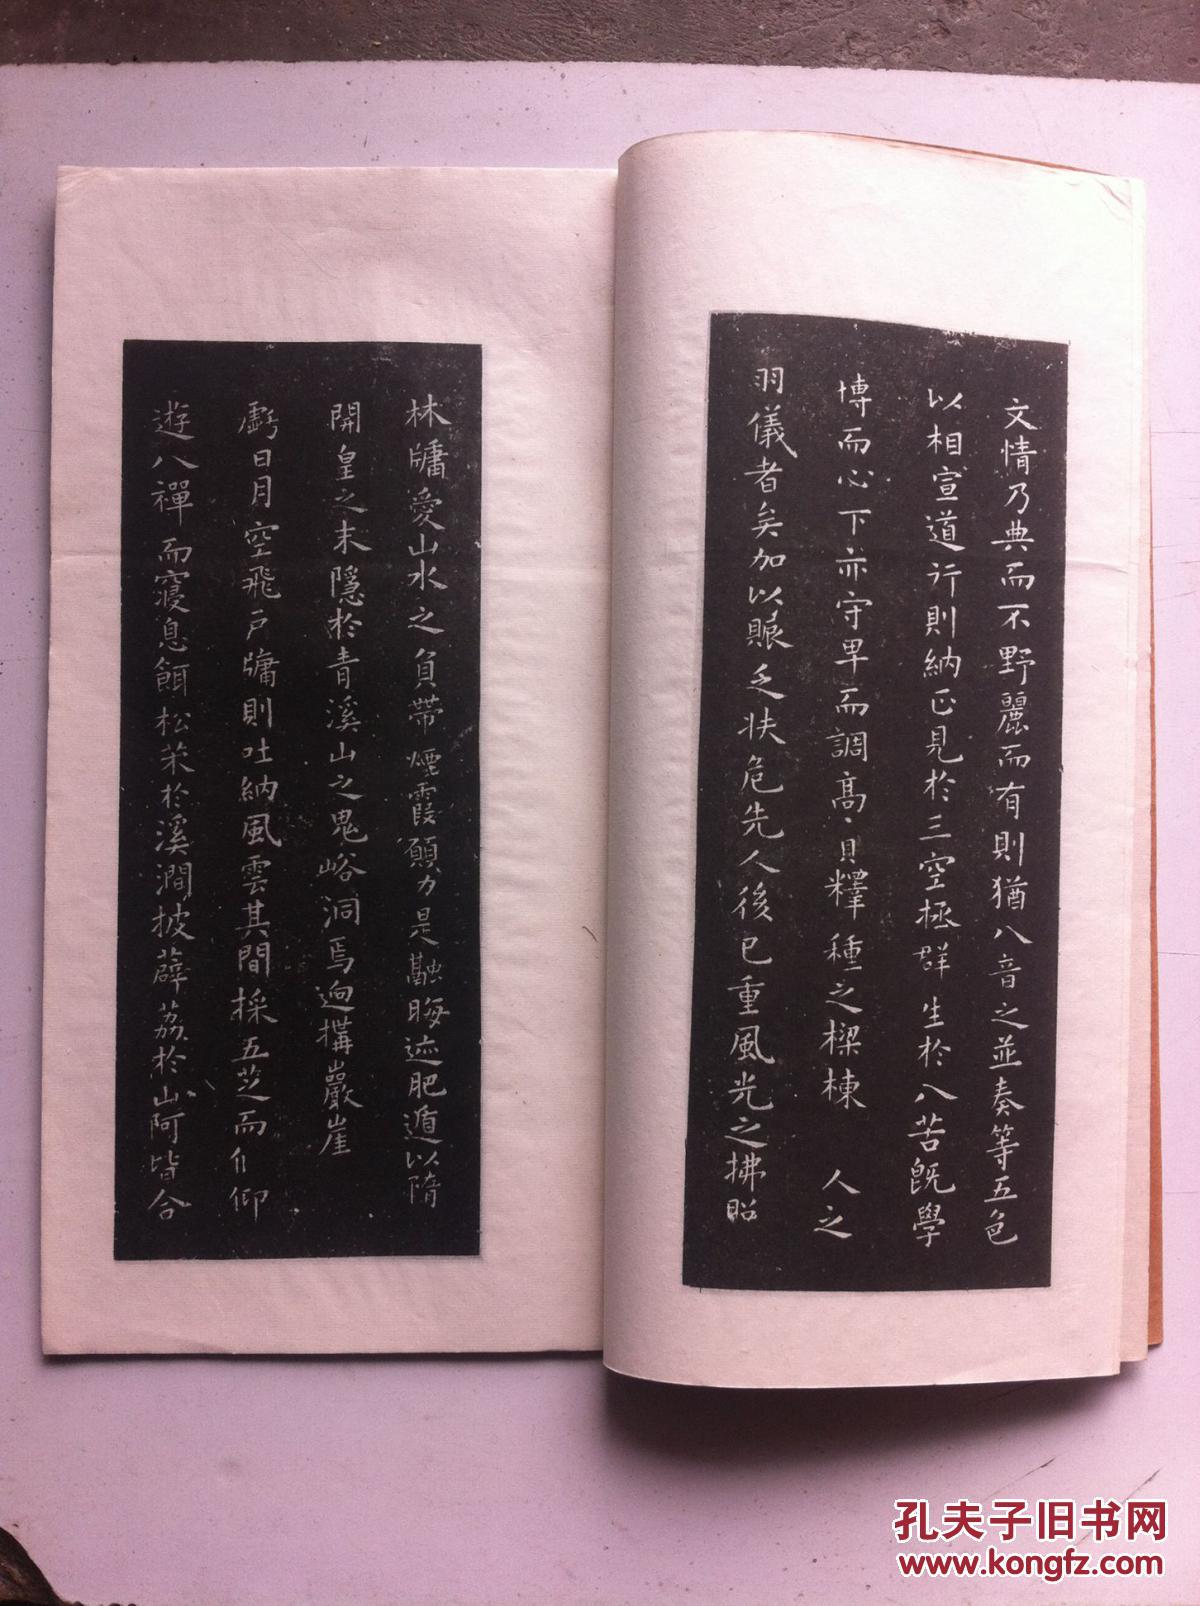 文情乃典而不野麗而有則猶八音之並奏等五色
以相宣道行則納正見於三空拯群生於八苦既學
博而心下亦守卑而調高寔釋種之樑棟人之
羽儀者矣加以賑乏扶危先人後己重風光之拂照
林牖愛山水之負帶煙霞願力是融晦迹肥遁以隋
開皇之末隱於青溪山之鬼峪洞焉逈搆巖崖
虧日月空飛戶牖則吐納風雲其間採五芝而偃仰
遊八禪而寢息餌松朮於溪澗披薜荔於山阿皆合
孔夫子旧书网
www.kongfz.com